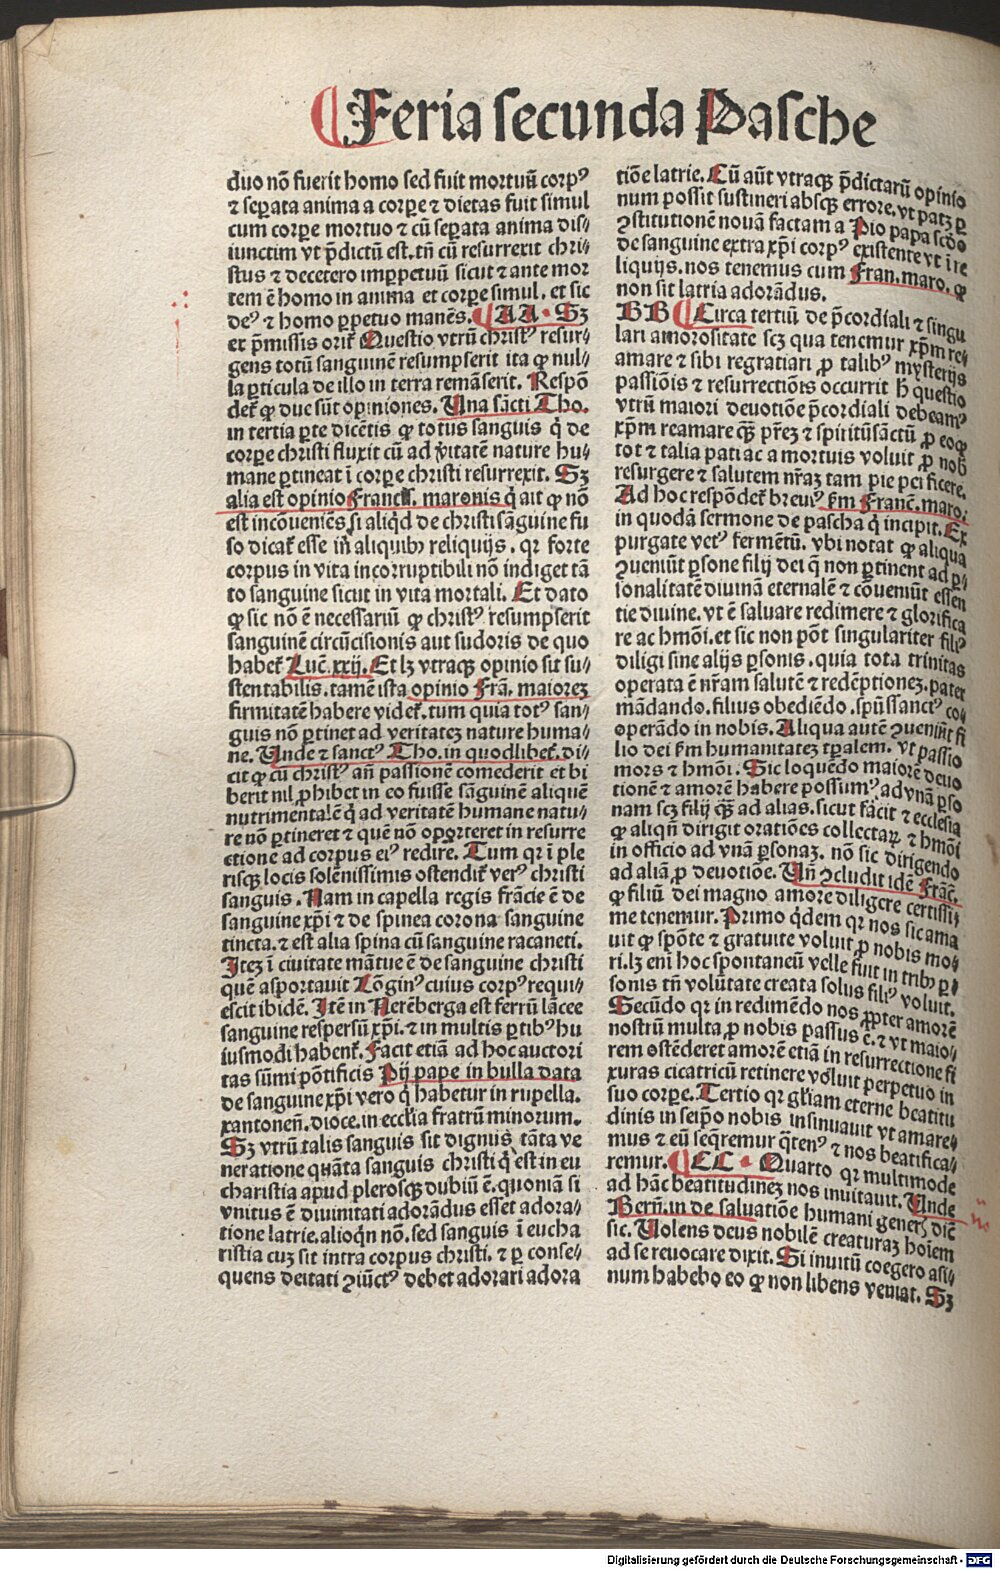 Feria secunda Pasche
duo nõ fuerit homo sed fuit mortuũ corpꝰ
⁊ seꝑata anima a corpe ⁊ dietas fuit simul
cum corpe mortuo ⁊ cũ seꝑata anima dis⸗
iunctim vt p̃dictũ est. tñ cũ resurrexit chri⸗
stus ⁊ decetero imꝑpetuũ sicut ⁊ ante mor
tem ẽ homo in anima et corpe simul. et sic
deꝰ ⁊ homo ꝑpetuo manẽs. AA. Sꝫ
ex p̃missis orit̃ Questio vtrũ christꝰ resur⸗
gens totũ sanguinẽ resumpserit ita ꝙ nul⸗
la ꝑticula de illo in terra remãserit. Respõ
det̃ ꝙ due sũt opiniones. Una sãcti Tho.
in tertia ꝑte dicẽtis ꝙ totus sanguis q̇ de
corpe christi fluxit cũ ad ṽitatẽ nature hu⸗
mane ꝑtineat ĩ corpe christi resurrexit. Sꝫ
alia est opinio Francis. maronis q̇ ait ꝙ nõ
est incõueniẽs si aliq̇d de christi sãguine fu
so dicat̃ esse iñ aliquibꝰ reliquijs. qr forte
corpus in vita incorruptibili nõ indiget tã
to sanguine sicut in vita mortali. Et dato
ꝙ sic nõ ẽ necessariũ ꝙ christꝰ resumpserit
sanguinẽ circũcisionis aut sudoris de quo
habet̃ Luc̃. xxij. Et lꝫ vtraqꝫ opinio sit su⸗
stentabilis. tamẽ ista opinio Frã. maiorez
firmitatẽ habere videt̃. tum quia totꝰ san⸗
guis nõ ꝑtinet ad veritatez nature huma⸗
ne. Unde ⁊ sanctꝰ Tho. in quodlibet̃. di⸗
cit ꝙ cũ christꝰ añ passionẽ comederit et bi
berit nil ꝓhibet in eo fuisse sãguinẽ aliquẽ
nutrimentalẽ q̇ ad veritatẽ humane natu⸗
re nõ ꝑtineret ⁊ quẽ nõ oporteret in resurre
ctione ad corpus eiꝰ redire. Tum qr ĩ ple
risqꝫ locis solẽnissimis ostendit̃ verꝰ christi
sanguis. Nam in capella regis frãcie ẽ de
sanguine xp̃i ⁊ de spinea corona sanguine
tincta. ⁊ est alia spina cũ sanguine racaneti.
Itez ĩ ciuitate mãtue ẽ de sanguine christi
quẽ asportauit Lõginꝰ cuius corpꝰ requi⸗
escit ibidẽ. Itẽ in Nerẽberga est ferrũ lãcee
sanguine respersũ xp̃i. ⁊ in multis ꝑtibꝰ hu
iusmodi habent̃. Facit etiã ad hoc auctori
tas sũmi põtificis Pij pape in bulla data
de sanguine xp̃i vero q̇ habetur in rupella.
xantonen̄. dioce. in ecclĩa fratrũ minorum.
Sꝫ vtrũ talis sanguis sit dignus tãta ve
neratione quãta sanguis christi q̇ est in eu
charistia apud plerosqꝫ dubiũ ẽ. quoniã si
vnitus ẽ diuinitati adorãdus esset adora⸗
tione latrie. alioqñ nõ. sed sanguis ĩ eucha
ristia cuz sit intra corpus christi. ⁊ ꝑ conse⸗
quens deitati ꝯiũctꝰ debet adorari adora
tiõe latrie. Cũ aũt vtraqꝫ p̃dictarũ opinio
num possit sustineri absqꝫ errore. vt patꝫ ꝑ
ꝯstitutionẽ nouã factam a Pio papa scd̃o
de sanguine extra xp̃i corpꝰ existente vt ĩ re
liquijs. nos tenemus cum Fran. maro. ꝙ
non sit latria adorãdus.
BB Circa tertiũ de p̃cordiali ⁊ singu
lari amorositate scꝫ qua tenemur xp̃m re⸗
amare ⁊ sibi regratiari ꝓ talibꝰ mysterijs
passiõis ⁊ resurrectiõis occurrit h̃ questio
vtrũ maiori deuotiõe p̃cordiali debeamꝰ
xp̃m reamare qꝫ̃ p̃rẽꝫ ⁊ spiritũsãctũ ꝓ eo ꝙ
tot ⁊ talia pati ac a mortuis voluit ꝓ nob̃
resurgere ⁊ salutem nr̃aꝫ tam pie perficere.
Ad hoc respõdet̃ breuiꝰ ẜm Francẽ. maro.
in quodã sermone de pascha q̇ incipit. Ex
purgate vetꝰ fermẽtũ. vbi notat ꝙ aliqua
ꝯueniũt ꝑsone filij dei q̃ non ꝑtinent ad ꝑ⸗
sonalitatẽ diuinã eternalẽ ⁊ cõueniũt essen
tie diuine. vt ẽ saluare redimere ⁊ glorifica
re ac hmõi. et sic non põt singulariter filiꝰ
diligi sine alijs ꝑsonis. quia tota trinitas
operata ẽ nr̃am salutẽ ⁊ redẽptionez. pater
mãdando. filius obediẽdo. spũssanctꝰ co⸗
operãdo in nobis. Aliqua autẽ ꝯueniũt fi
lio dei ẜm humanitatez tp̃alem. vt passio
mors ⁊ hmõi. Sic loquẽdo maiorẽ deuo
tionẽ ⁊ amorẽ habere possumꝰ ad vnã ꝑso
nam scꝫ filij qꝫ̃ ad alias. sicut facit ⁊ ecclesia
ꝙ aliqñ dirigit oratiões collectaꝝ ⁊ hmõi
in officio ad vnã ꝑsonaꝫ. nõ sic dirigendo
ad aliã ꝓ deuotiõe. Uñ ꝯcludit idẽ Francẽ.
ꝙ filiũ dei magno amore diligere certissi⸗
me tenemur. Primo q̇dem qr nos sic ama
uit ꝙ spõte ⁊ gratuite voluit ꝓ nobis mo⸗
ri. lꝫ eni̅ hoc spontaneũ velle fuit in tribꝰ ꝑ⸗
sonis tñ volũtate creata solus filiꝰ voluit.
Secũdo qr in redimẽdo nos ꝓpter amorẽ
nostrũ multa ꝓ nobis passus ẽ. ⁊ vt maio⸗
rem ostẽderet amorẽ etiã in resurrectione fi
xuras cicatricũ retinere voluit perpetuo in
suo corpe. Tertio qr gl̃iam eterne beatitu
dinis in seip̃o nobis insinuauit vt amare⸗
mus ⁊ eũ seq̃remur q̃tenꝰ ⁊ nos beatifica⸗
remur. CC. Quarto qr multimode
ad hãc beatitudineꝫ nos inuitauit. Unde
Berñ. in de saluatiõe humani generꝭ dic̃
sic. Uolens deus nobilẽ creaturaꝫ hoĩem
ad se reuocare dixit. Si inuitũ coegero asi⸗
num habebo eo ꝙ non libens veniat. Sꝫ
Digitalisierung gefördert durch die Deutsche Forschungsgemeinschaft - DFG